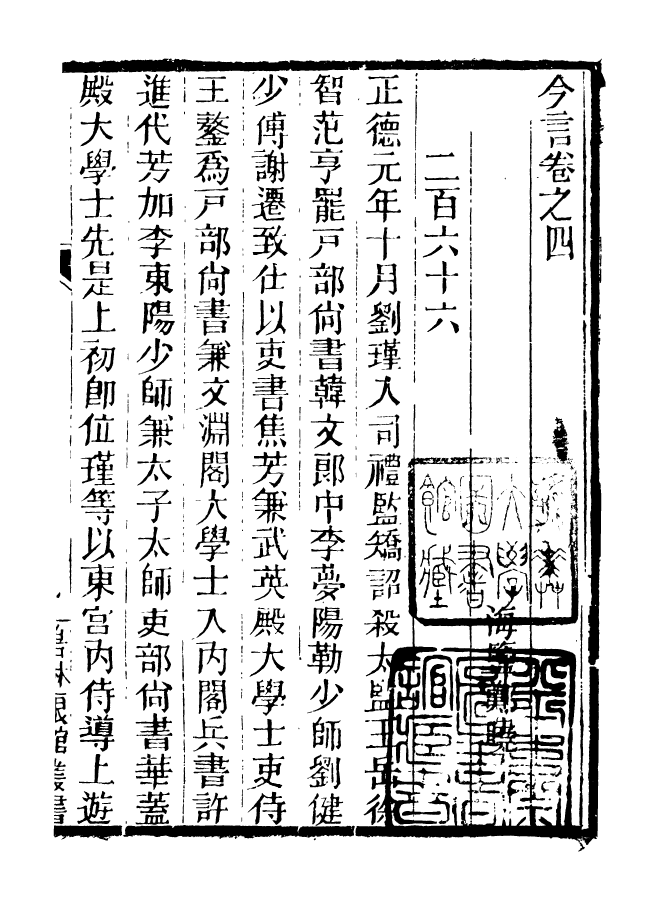 今言卷之四
海鹽鄭曉
二百六十六
正德元年十月劉瑾入司禮監矯詔殺太監王岳徐
智范亨罷戸部尙書韓文郎中李夢陽勒少師劉健
少傅謝遷致仕以吏書焦芳兼武英殿大學士吏侍
王鏊爲戸部尙書兼文淵閣大學士入内閣兵書許
進代芳加李東陽少師兼太子太師吏部尙書華蓋
殿大學士先是上初卽位瑾等以東宮内侍導上遊
館叢書
大學
圖書
館藏